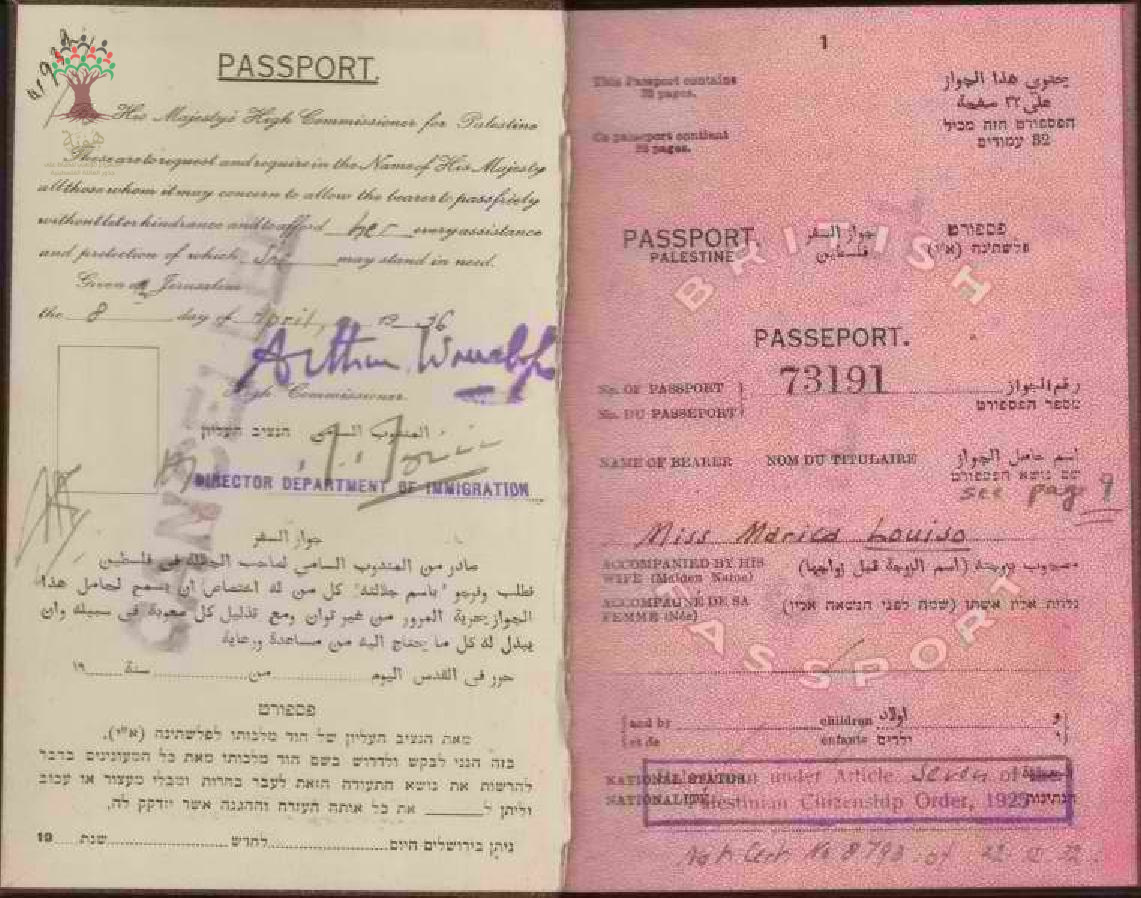 PASSPORT.
His Majesty's High Commissioner for Palestine
These are to request and require in the Name of His Majesty
all those whom it may concern to allow the bearer to pass freely
without let or hindrance and to afford her every assistance
and protection of which She may stand in need.
Given at Jerusalem
the 8 day of April, 19 36
High Commissioner.
المندوب السامي הנציב העליון
DIRECTOR DEPARTMENT OF IMMIGRATION
CANCELLED
جواز السفر
صادر من المندوب السامي لصاحب الجلالة في فلسطين
نطلب ونرجو "باسم جلالته" كل من له اختصاص ان يسمح لحامل هذا
الجواز بحرية المرور من غير توان ومع تذليل كل صعوبة في سبيله وان
يبذل له كل ما يحتاج اليه من مساعدة ورعاية
حرر في القدس اليوم من سنة ١٩
פספורט
מאת הנציב העליון של הוד מלכותו לפלשתינה (א"י).
בזה הנני לבקש ולדרוש בשם הוד מלכותו מאת כל המעונינים בדבר
להרשות את נושא התעודה הזאת לעבר בחרות ומבלי מעצור או עכוב
וליתן ל את כל אותה העזרה וההגנה אשר יזדקק לה.
ניתן בירושלים היום לחדש שנת 19
1
This Passport contains
32 pages.
Ce passeport contient
32 pages.
يحتوي هذا الجواز
على ٣٢ صفحة
הפספורט הזה מכיל
32 עמודים
BRITISH
PASSPORT. جواز السفر פספורט
PALESTINE فلسطين פלשתינה (א"י)
PASSEPORT.
No. OF PASSPORT 73191 رقم الجواز
No. DU PASSEPORT מספר הפספורט
NAME OF BEARER NOM DU TITULAIRE اسم حامل الجواز
שם נושא הפספורט
see page 9
Miss Marica Louiso
ACCOMPANIED BY HIS
WIFE (Maiden Name) مصحوب بزوجته (اسم الزوجة قبل زواجها)
ACCOMPAGNÉ DE SA
FEMME (Née) נלוית אליו אשתו (שמה לפני הנשאה אליו)
PASSPORT
and by children اولاد و
et de enfants ילדים ו
NATIONAL STATUS
NATIONALITÉ הנתינות
under Article Seven of the
Palestinian Citizenship Order, 1925
Cert No